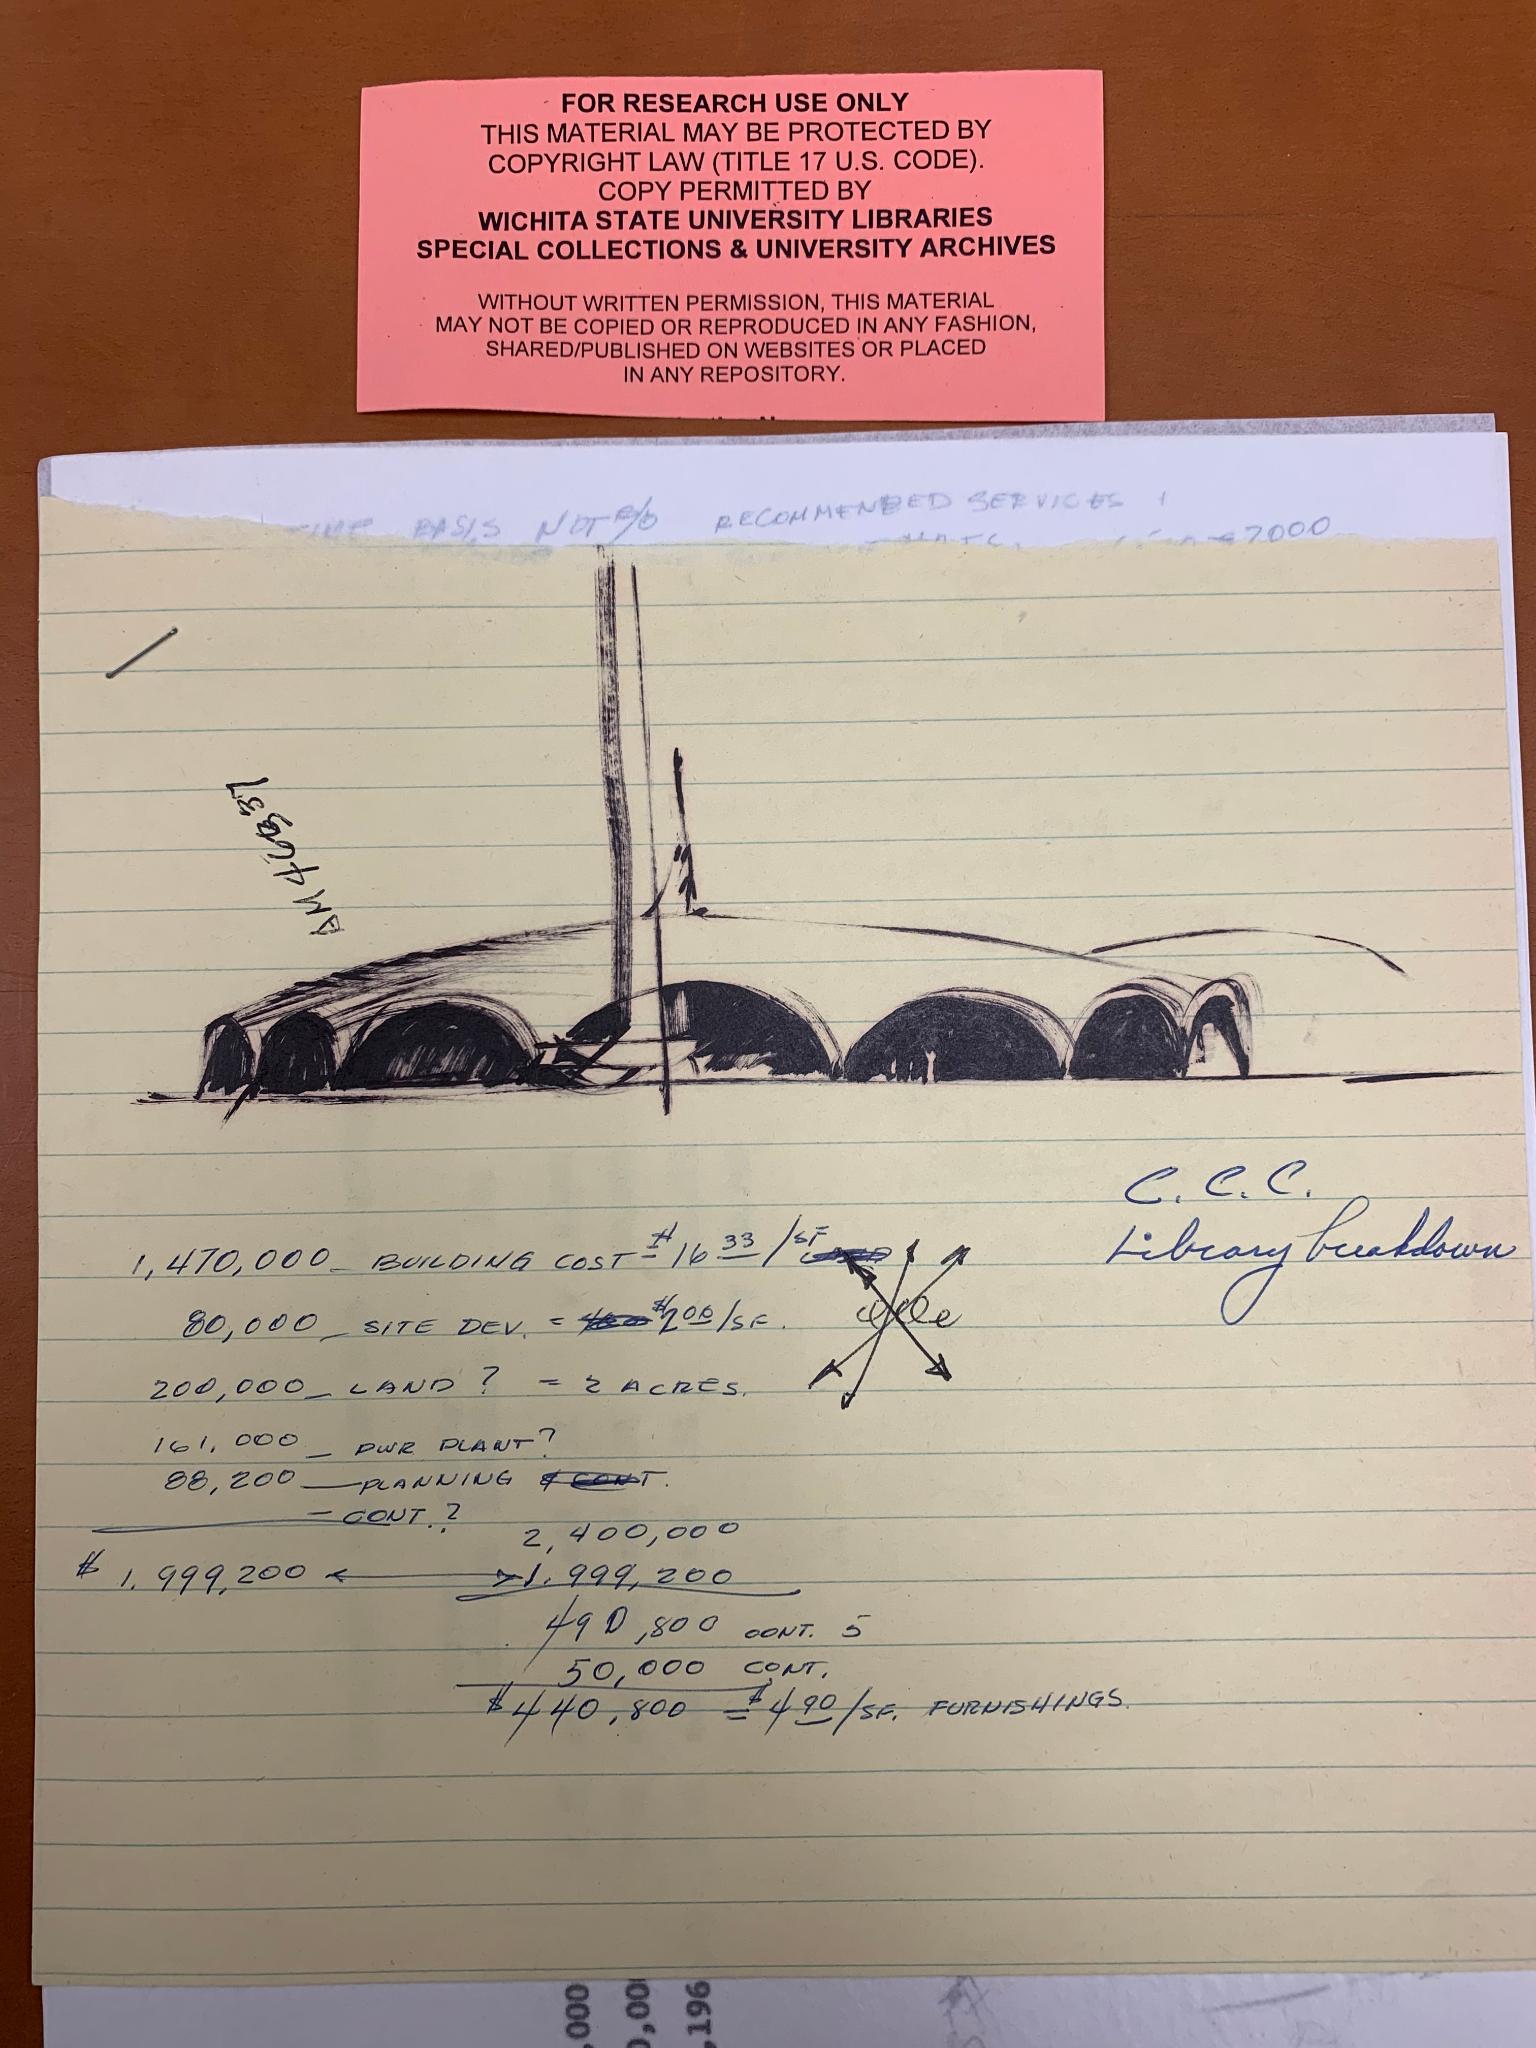 FOR RESEARCH USE ONLY
THIS MATERIAL MAY BE PROTECTED BY
COPYRIGHT LAW (TITLE 17 U.S. CODE).
COPY PERMITTED BY
WICHITA STATE UNIVERSITY LIBRARIES
SPECIAL COLLECTIONS & UNIVERSITY ARCHIVES
WITHOUT WRITTEN PERMISSION, THIS MATERIAL
MAY NOT BE COPIED OR REPRODUCED IN ANY FASHION,
SHARED/PUBLISHED ON WEBSITES OR PLACED
IN ANY REPOSITORY.
TIME BASIS NOT RECOMMENDED SERVICES
7000
AM 4
C. C. C.
Library breakdown
1,470,000 - BUILDING COST = $16 33 /SF
80,000 - SITE DEV. = $2 00 /SF.
200,000 - LAND ? = 2 ACRES.
161,000 - PWR PLANT?
88,200 - PLANNING & CONT.
- CONT.?
2,400,000
$ 1,999,200 1,999,200
490,800 CONT. 5
50,000 CONT.
$440,800 = $4 90 /SF. FURNISHINGS.
,000
0,00
,196